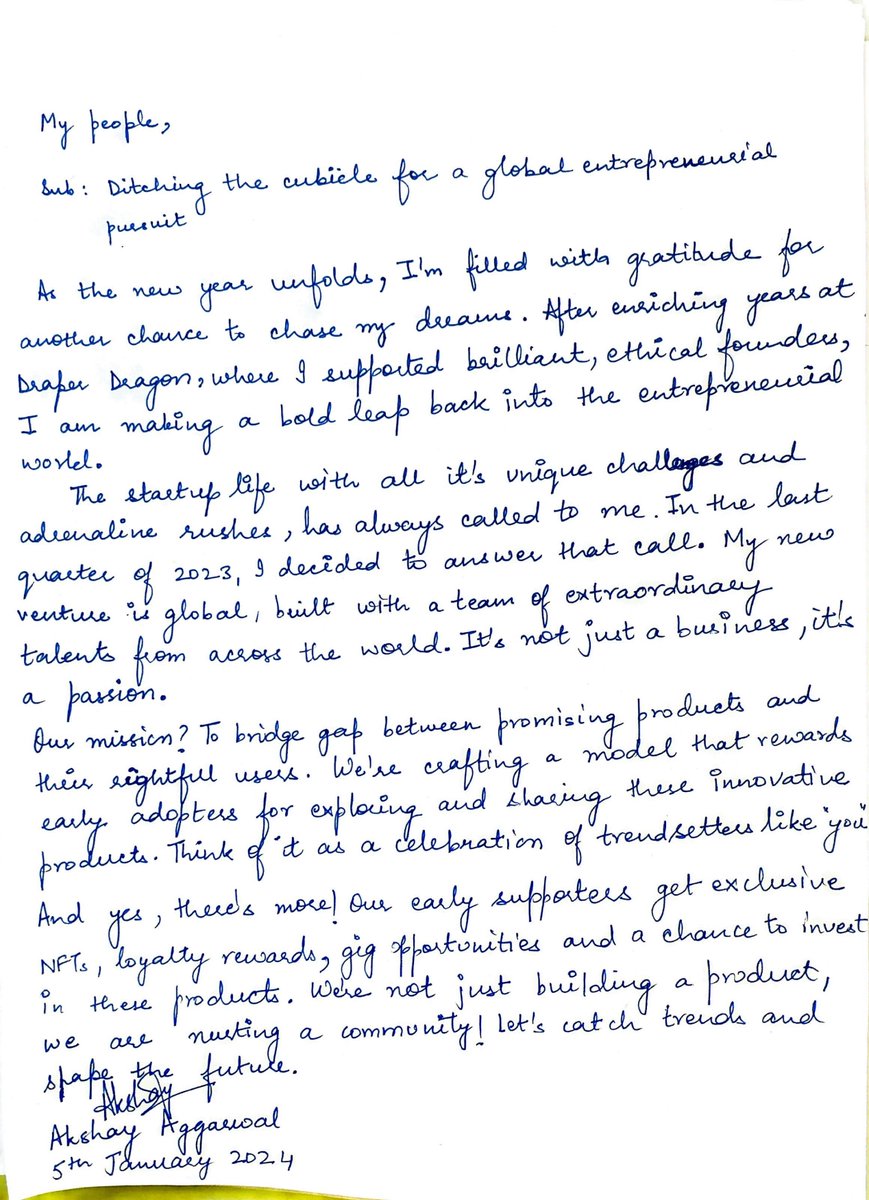 My people,
Sub: Ditching the cubicle for a global entrepreneurial
pursuit
As the new year unfolds, I'm filled with gratitude for
another chance to chase my dreams. After enriching years at
Draper Dragon, where I supported brilliant, ethical founders,
I am making a bold leap back into the entrepreneurial
world.
The startup life with all it's unique challeges and
adrenaline rushes, has always called to me. In the last
quarter of 2023, I decided to answer that call. My new
venture is global, built with a team of extraordinary
talents from across the world. It's not just a business, it's
a passion.
Our mission? To bridge gap between promising products and
their rightful users. We're crafting a model that rewards
early adopters for exploring and sharing these innovative
products. Think of it as a celebration of trendsetters like "you"
And yes, there's more! Our early supporters get exclusive
NFTs, loyalty rewards, gig opportunities and a chance to invest
in these products. We're not just building a product,
we are nurting a community! Let's catch trends and
spape the future.
Akshay
Akshay Aggarwal
5th January 2024